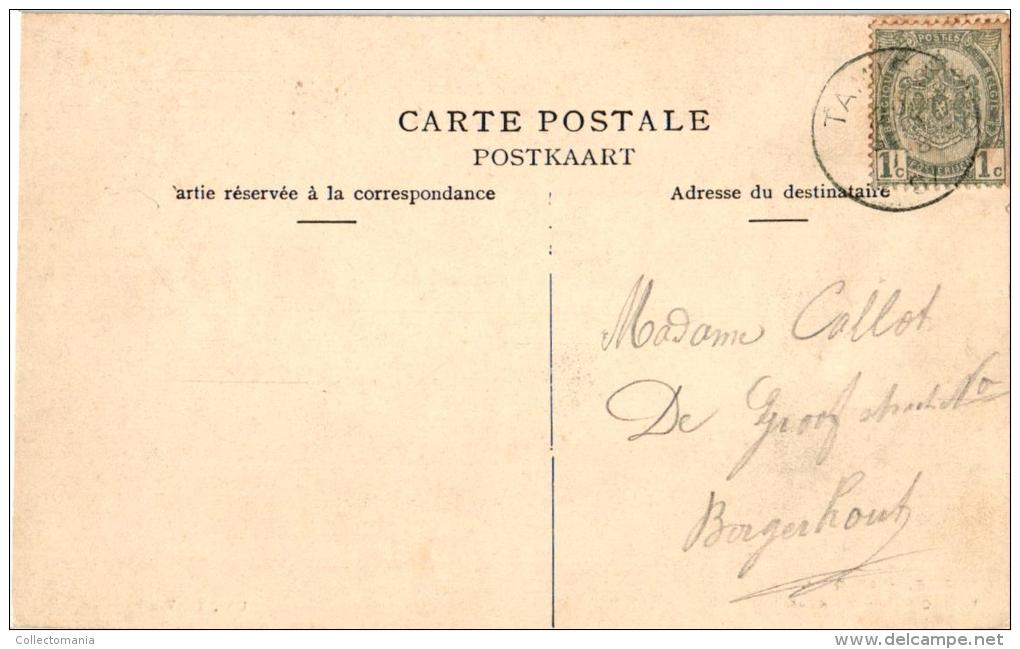 CARTE POSTALE
POSTKAART
artie réservée à la correspondance
Adresse du destinataire
POSTES
1c 1c
Madame Callot
De Groof No
Borgerhout
Collectomania
www.delcampe.net